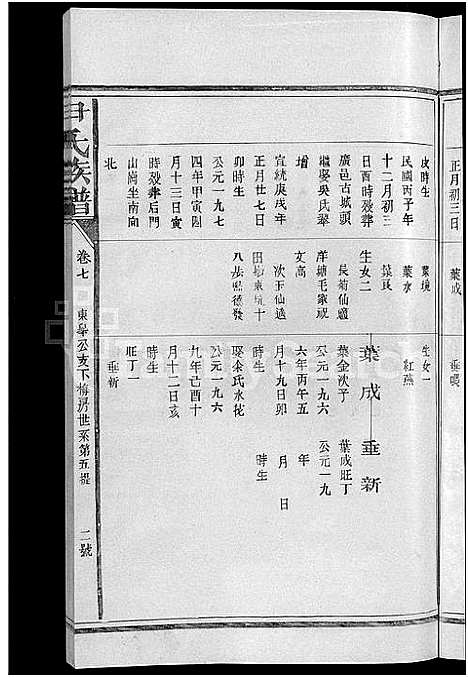 正月初三日
葉成
垂暖
戌時生
民國丙子年
十二月初三
日酉時殁葬
廣邑古城頭
繼娶吳氏翠
增
宣統庚戌年
正月廿七日
卯時生
公元一九七
四年甲寅四
月十三日寅
時殁葬后門
山崗坐南向
北
葉境
葉水
葉良
生女二
長菊仙適
洋塘毛家祝
文高
次玉仙適
八步熙德發
生女一
紅燕
葉成
垂新
葉金次子
公元一九六
六年丙午五
月十九日卯
時生
娶余氏水花
公元一九六
九年己酉十
月十二日亥
時生
旺丁一
垂新
葉成旺丁
公元一九
年
月 日
時生
尹氏族譜
卷七
東皋公支下梅房世系第五提
二號